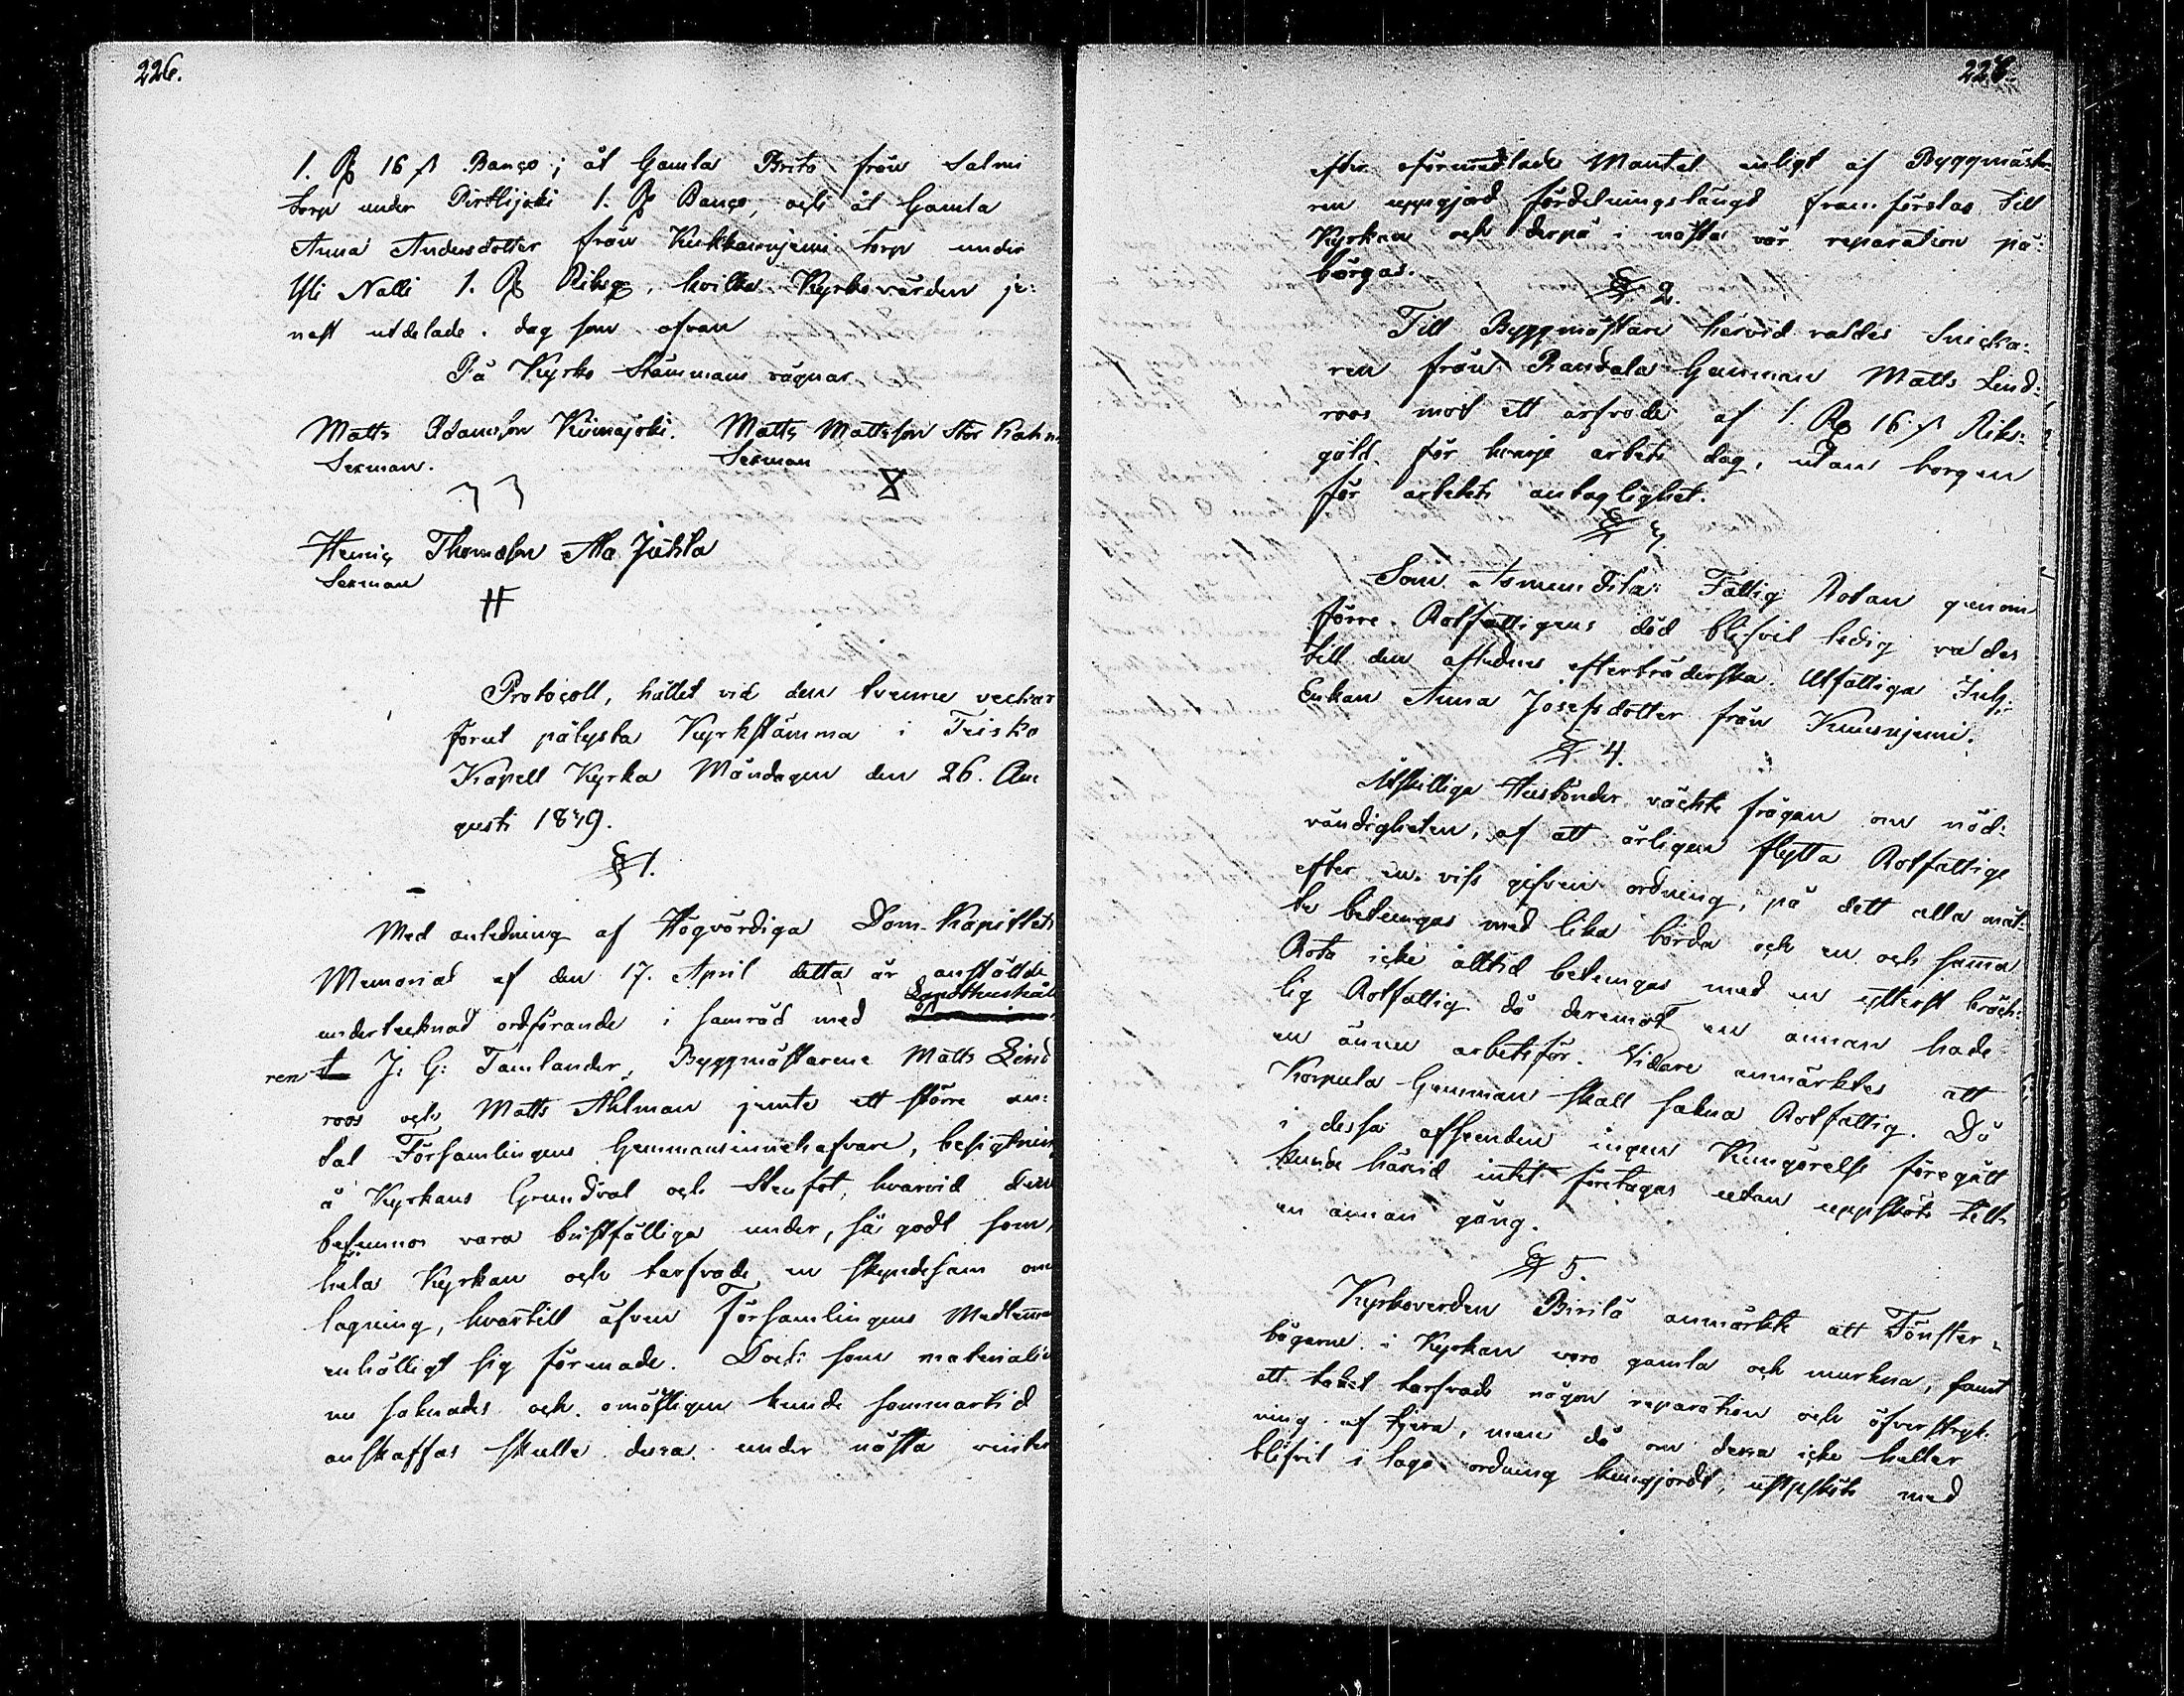 226.
1. Rd 16 s Banco; åt Gamla Brita från Salmi
torp under Pirttijoki 1. Rd Banco, och åt Gamla
Anna Andersdotter från torp under
Yli Nalli 1. Rd Riksg, hvilka Kyrkovärden ge-
nast utdelade. dag som ofvan
På Kyrko Stämmans vägnar.
Matts Adamsson Kiimajoki. Matts Mattsson Stor
Sexman. Sexman
Henric Thomasson Ala Juhtla
Sexman
Protocoll, hållet vid den tvenne veckor
förut pålysta Kyrkstämma i Teisko
Kapell Kyrka Måndagen den 26. Au
gusti 1839.
§ 1.
Med anledning af Högvördiga Dom-Kapitlets
Memorial af den 17. April detta år anställde
undertecknad ordförande i samråd med Landthushåll
ren J: G: Tamlander, Byggmästarene Matts Lind
roos och Matts Ahlman jemte ett större an-
tal Församlingens Hemmansinnehafvare, besigtning
å Kyrkans Grundval och Stenfot, hvarvid den
befunnos vara bristfälliga under, så godt som,
hela Kyrkan och tarfvade en skyndesam om
lagning, hvartill äfven Församlingens Medlemmar
enhälligt sig förenade. Doch som materialier
nu saknades och omöjligen kunde sommartid
anskaffas skulle dessa under nästa vinter
227.
efter oförmedlade Mantal enligt af Byggmästa-
ren uppgjord fördelningslängd framförslas till
Kyrkan och derpå i nästa vår reparation på-
börgas.
§ 2.
Till Byggmästare härvid valdes Snicka-
ren från Randala Hemman Matts Lind-
roos mot ett arfvode af 1. Rd 16 s Riks-
gäld för hvarje arbets dag, utan borgen
för arbetets antaglighet.
§ 3.
Som Asmundila Fattig Rotan genom
förre Rotfattigens död blifvit ledig valdes
till den aflednes efterträderska Utfattiga Inh:
Enkan Anna Josefsdotter från Kuusnjemi.
§ 4.
Åtskilliga Husbönder väckte frågan om nöd-
vändigheten, af att årligen flytta Rotfattige
efter en viss gifven ordning, på dett alla måt-
te betungas med lika börda och en och samma
Rota icke alltid betungas med en ytterst bräck-
lig Rotfattig då deremot en annan hade
en ännu arbetsför. Vidare anmärktes att
Korpula Hemman skall sakna Rotfattig. Då
i dessa afseenden ingen Kungörelse föregått
kunde härvid intet företagas utan uppsköts till
en annan gång.
§ 5.
Kyrkoverden Birilä anmärkte att Fönster-
bågarne i Kyrkan voro gamla och murkna, samt
att taket tarfvade någon reparation och öfverstryk-
ning af tjera, men då om dessa icke heller
blifvit i laga ordning kungjordt, uppsköts med